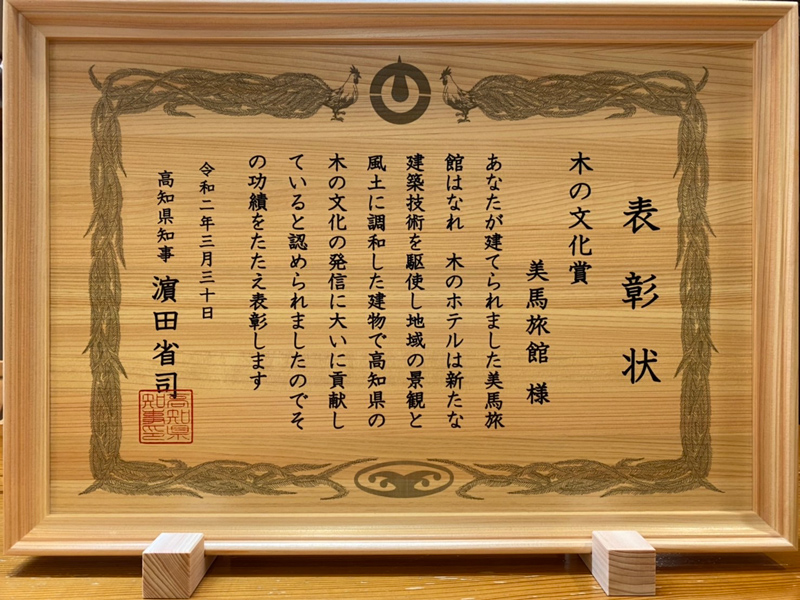 表彰状
木の文化賞
美馬旅館 様
あなたが建てられました美馬旅
館はなれ 木のホテルは新たな
建築技術を駆使し地域の景観と
風土に調和した建物で高知県の
木の文化の発信に大いに貢献し
ていると認められましたのでそ
の功績をたたえ表彰します
令和二年三月三十日
高知県知事 濵田省司
高知県
知事印